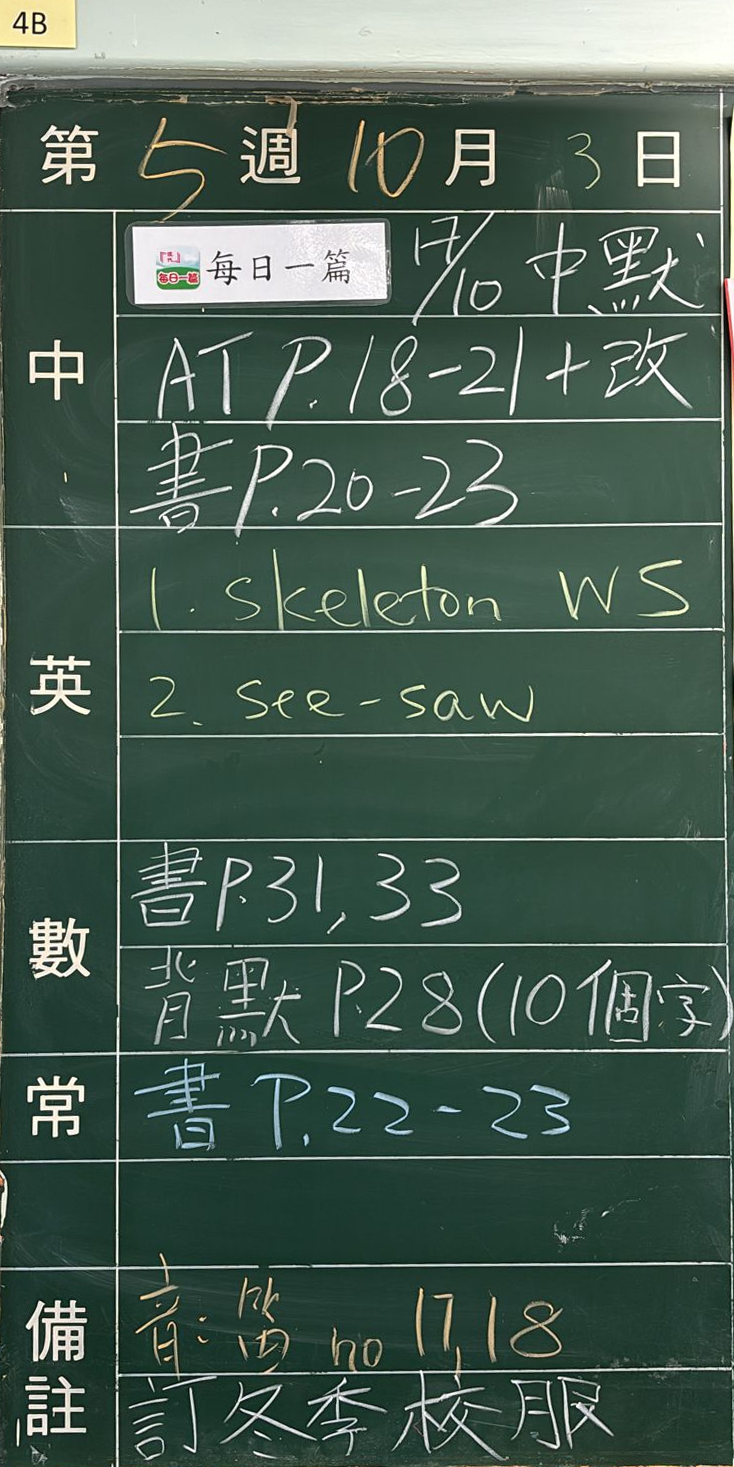 4B
第5週10月3日
中
每日一篇 17/10 中默
AT P.18-21+改
書P.20-23
英
1. skeleton WS
2. see-saw
數
書P.31,33
背默 P.28(10個字)
常
書 P.22-23
備註
音:笛 no 17,18
訂冬季校服